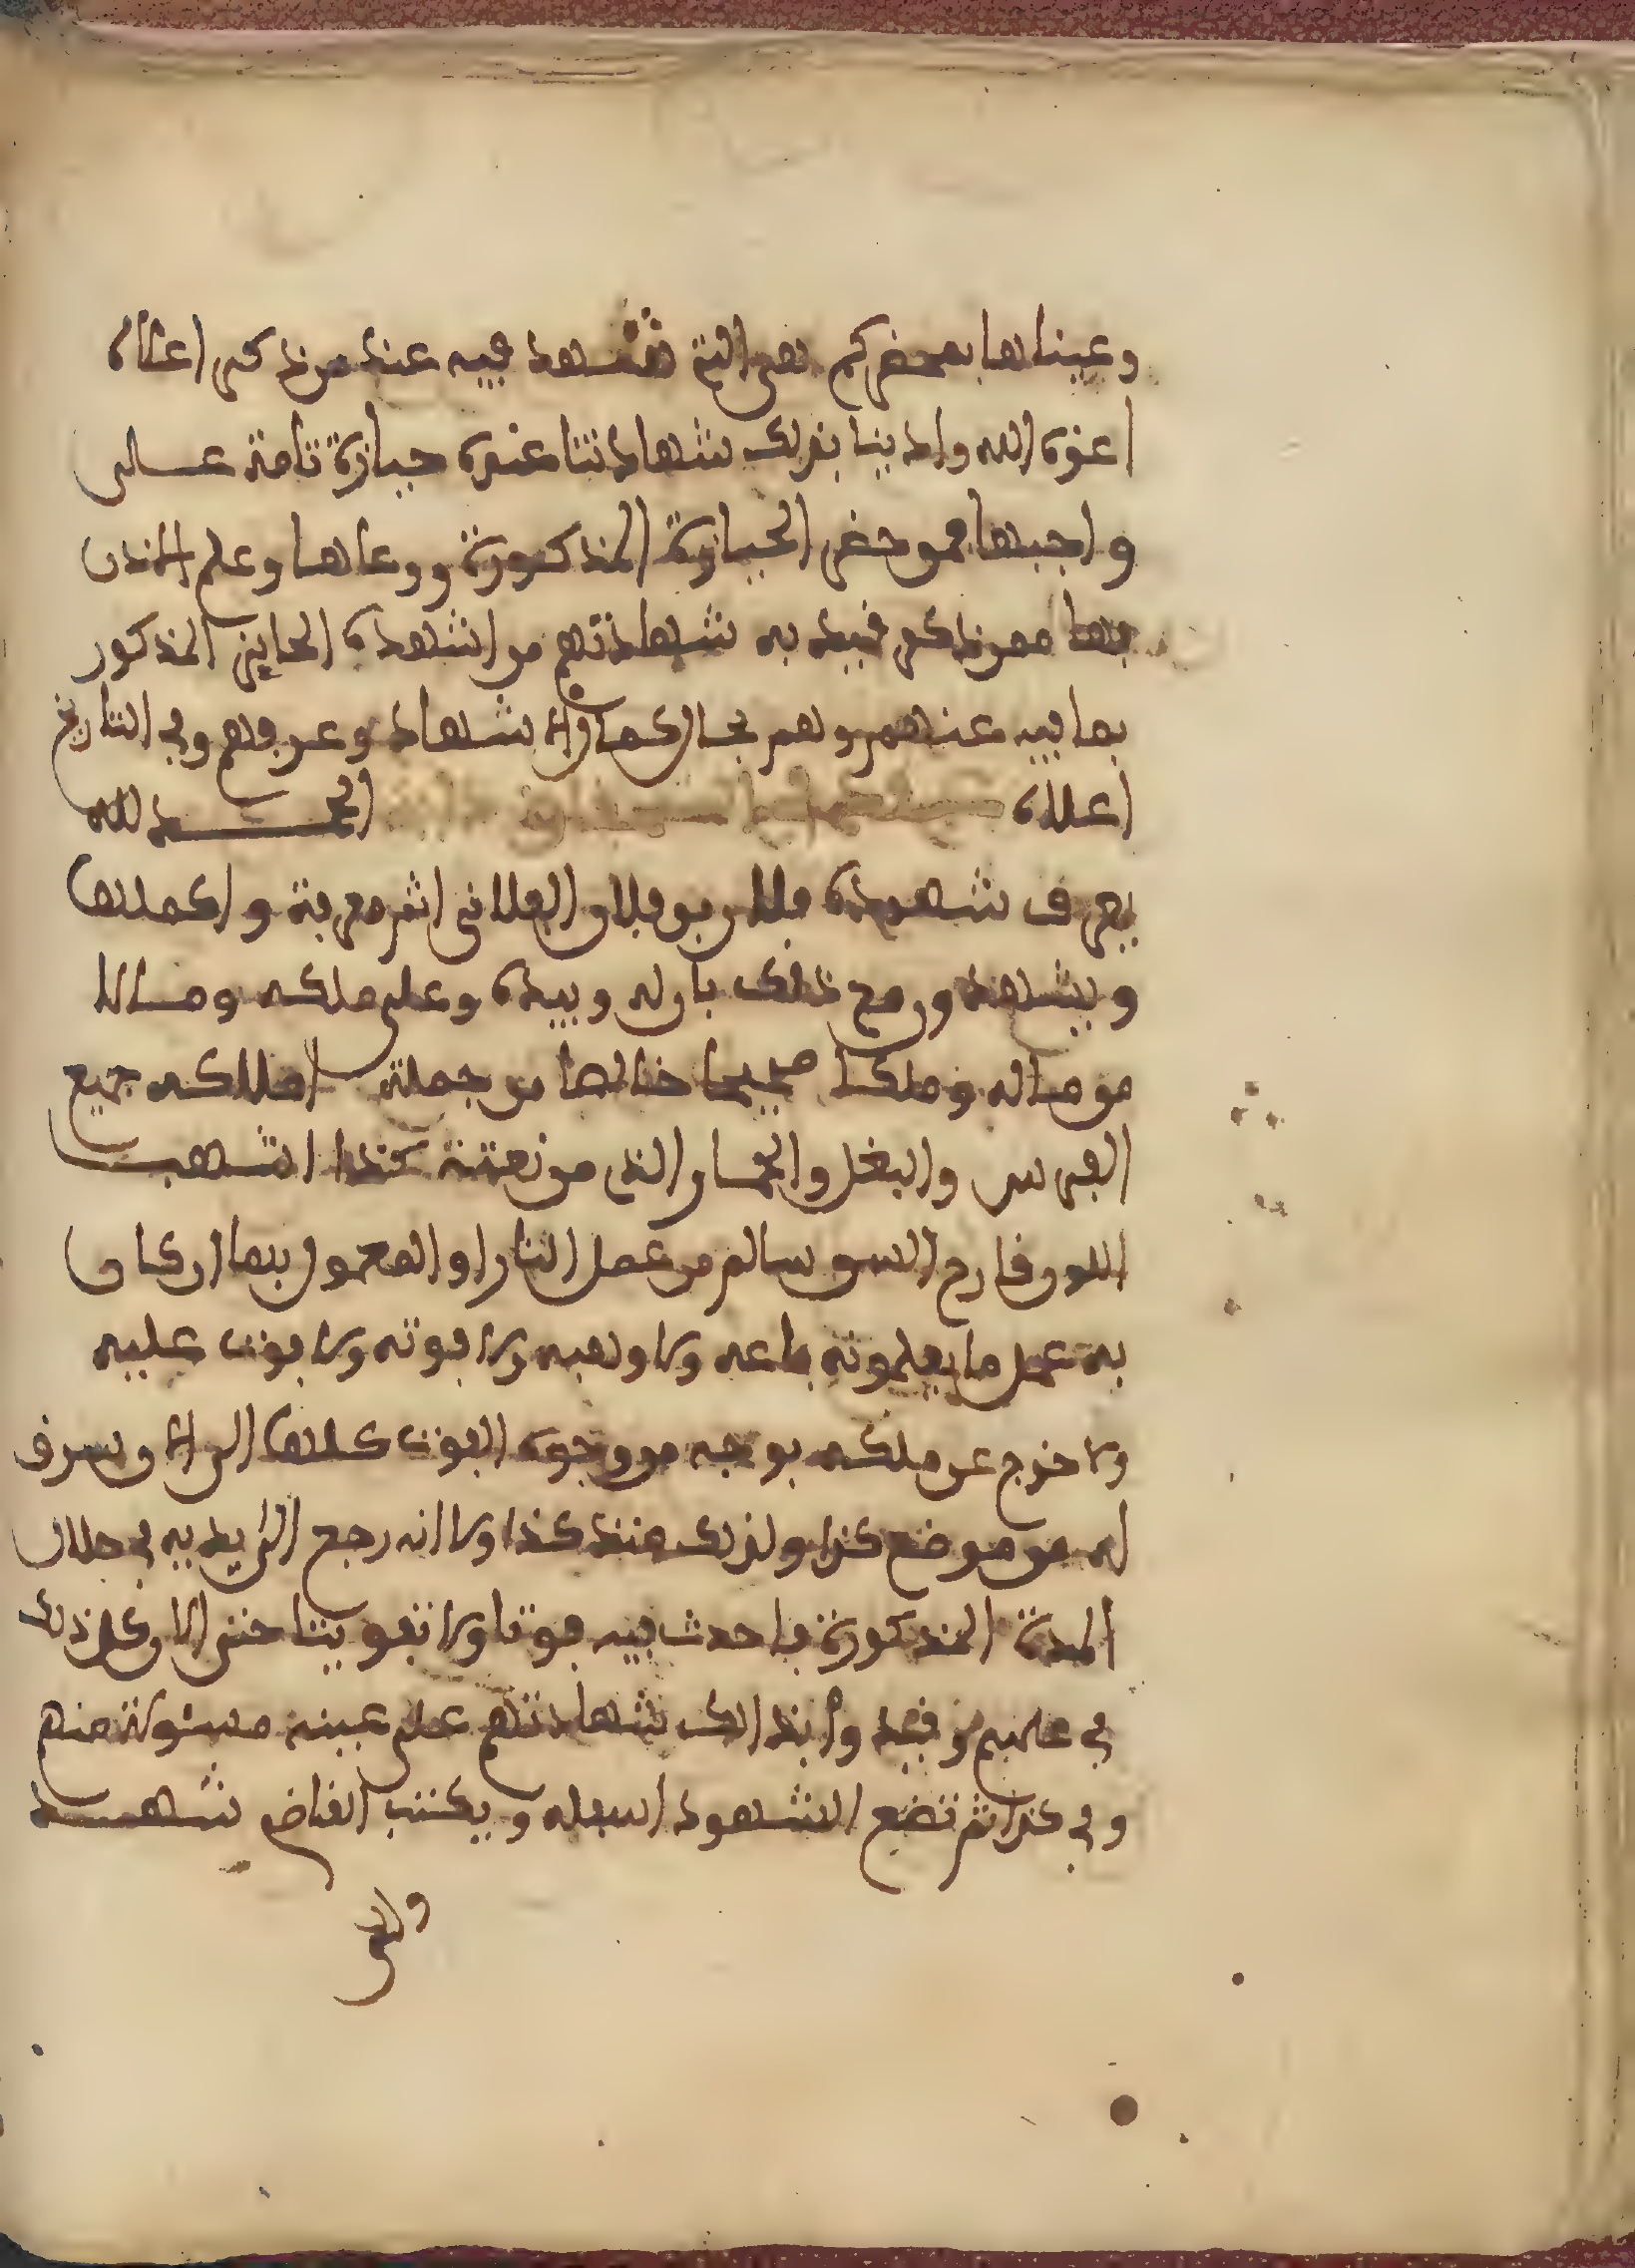 وعيناها بمحضركم هي التي شهد فيه عند من ذكر اعلاه
اعزه الله وادينا بذلك شهادتنا عنده حيازة تامة على
واجبها فمن حضر الحيازة المذكورة ووعاها وعلم الاذن
بها ممن ذكر قيد به شهادتهم من اشهده الحايز المذكور
بما فيه عنهم وهم بحال كمال الاشهاد وعرفهم وفي التاريخ
اعلاه الحمد لله
يعرف شهوده فلان بن فلان الفلاني اثم معرفة واكملها
ويشهد ومع ذلك بان له وبيده وعلى ملكه ومالا
من ماله وملكا صحيحا خالصا من جملة املاكه جميع
الفرس والبغل والحمار الذي من نعته كذا اشهب
اللون قارح السن سالم من عمل النار او المعمول بها ان كان
به عمل ما يعلمونه باعه ولا وهبه ولا فوته ولا فوت عليه
ولا خرج عن ملكه بوجه من وجوه الفوت كلها الى ان سرف
له من موضع كذا ولذلك منذ كذا ولا انه رجع الى يديه في خلال
المدة المذكورة فاحدث فيه فوتا ولا تفويتا حتى الان وكل ذلك
في علمهم وقيد وا بذالك شهادتهم على عينه مسئولة منهم
وفي كذا ثم تضع الشهود اسفله ويكتب القاضي شهد